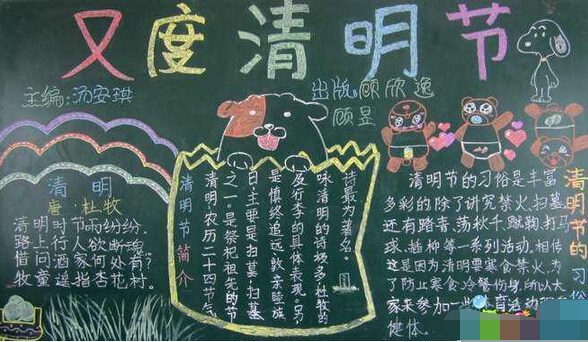 又度清明节
主编:汤安琪
出版 顾欣逸
顾昱
清明
唐·杜牧
清明时节雨纷纷,
路上行人欲断魂。
借问酒家何处有?
牧童遥指杏花村。
清明节简介
清明是农历二十四节气
之一,是祭祀祖先的节
日,主要是扫墓,扫墓
是慎终追远敦亲睦族
及行孝的具体表现。另,
咏清明的诗极多,杜牧的
诗最为著名。
清明节的习俗
清明节的习俗是丰富
多彩的除了讲究禁火、扫墓
还有踏青、荡秋千、蹴鞠、打马
球、插柳等一系列活动。相传
这是因为清明要寒食禁火,为
了防止寒食冷餐伤身,所以大
家来参加一些
健体。